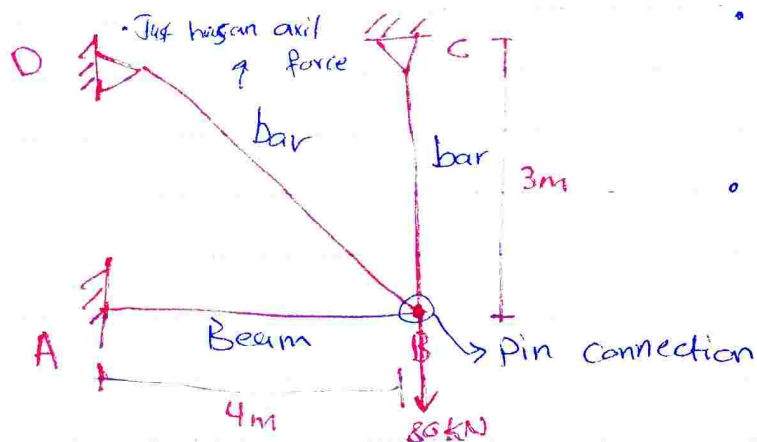 . Just
axil
D
force
C
bar
bar
3m
A
Beam
B
Pin connection
4m
80KN